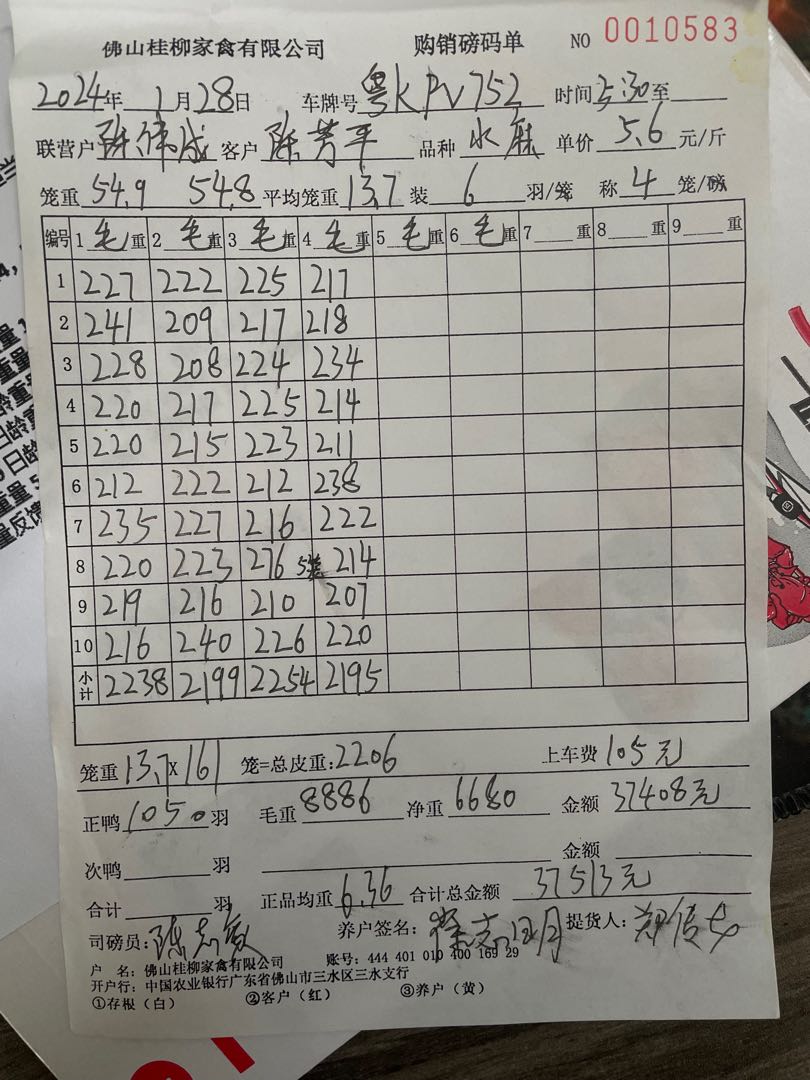 佛山桂柳家禽有限公司 购销磅码单 NO 0010583
2024年 1月28日 车牌号 粤KPV752 时间 5:30至
联营户 陈伟成 客户 陈芳平 品种 水麻 单价 5.6 元/斤
笼重 54.9 54.8 平均笼重 13.7 装 6 羽/笼 称 4 笼/磅
编号 1 毛重 2 毛重 3 毛重 4 毛重 5 毛重 6 毛重 7 重 8 重 9 重
1 227 222 225 217
2 241 209 217 218
3 228 208 224 234
4 220 217 225 214
5 220 215 223 211
6 212 222 212 238
7 235 227 216 222
8 220 223 276 5笼 214
9 219 216 210 207
10 216 240 226 220
小计 2238 2199 2254 2195
笼重 13.7×161 笼=总皮重:2206 上车费 105元
正鸭 1050 羽 毛重 8886 净重 6680 金额 37408元
次鸭 羽 金额
合计 羽 正品均重 6.36 合计总金额 37513元
司磅员: 陈志 养户签名: 提货人:
户 名: 佛山桂柳家禽有限公司 账号: 444 401 010 400 169 29
开户行: 中国农业银行广东省佛山市三水区三水支行
①存根（白） ②客户（红） ③养户（黄）